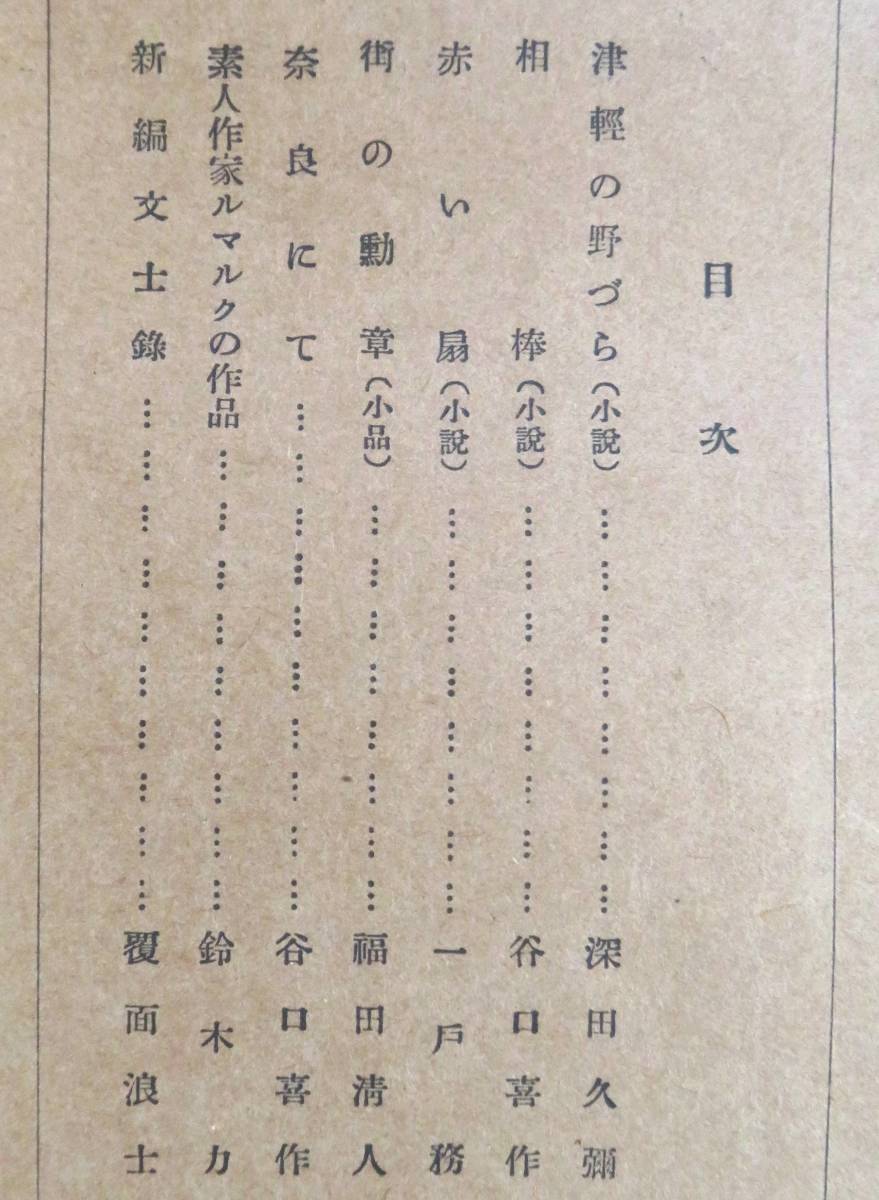 目次
津輕の野づら（小說）………………………深田久彌
相棒（小說）………………………谷口喜作
赤い扇（小說）………………………一戶務
街の勳章（小品）………………………福田淸人
奈良にて……………………………谷口喜作
素人作家ルマルクの作品…………………………鈴木力
新編文士錄……………………………覆面浪士